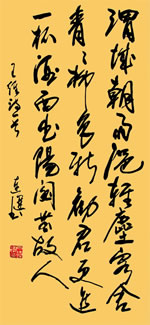 渭城朝雨浥輕塵客舍
青々柳色新勸君更
一杯酒西出陽關無故人
王維詩